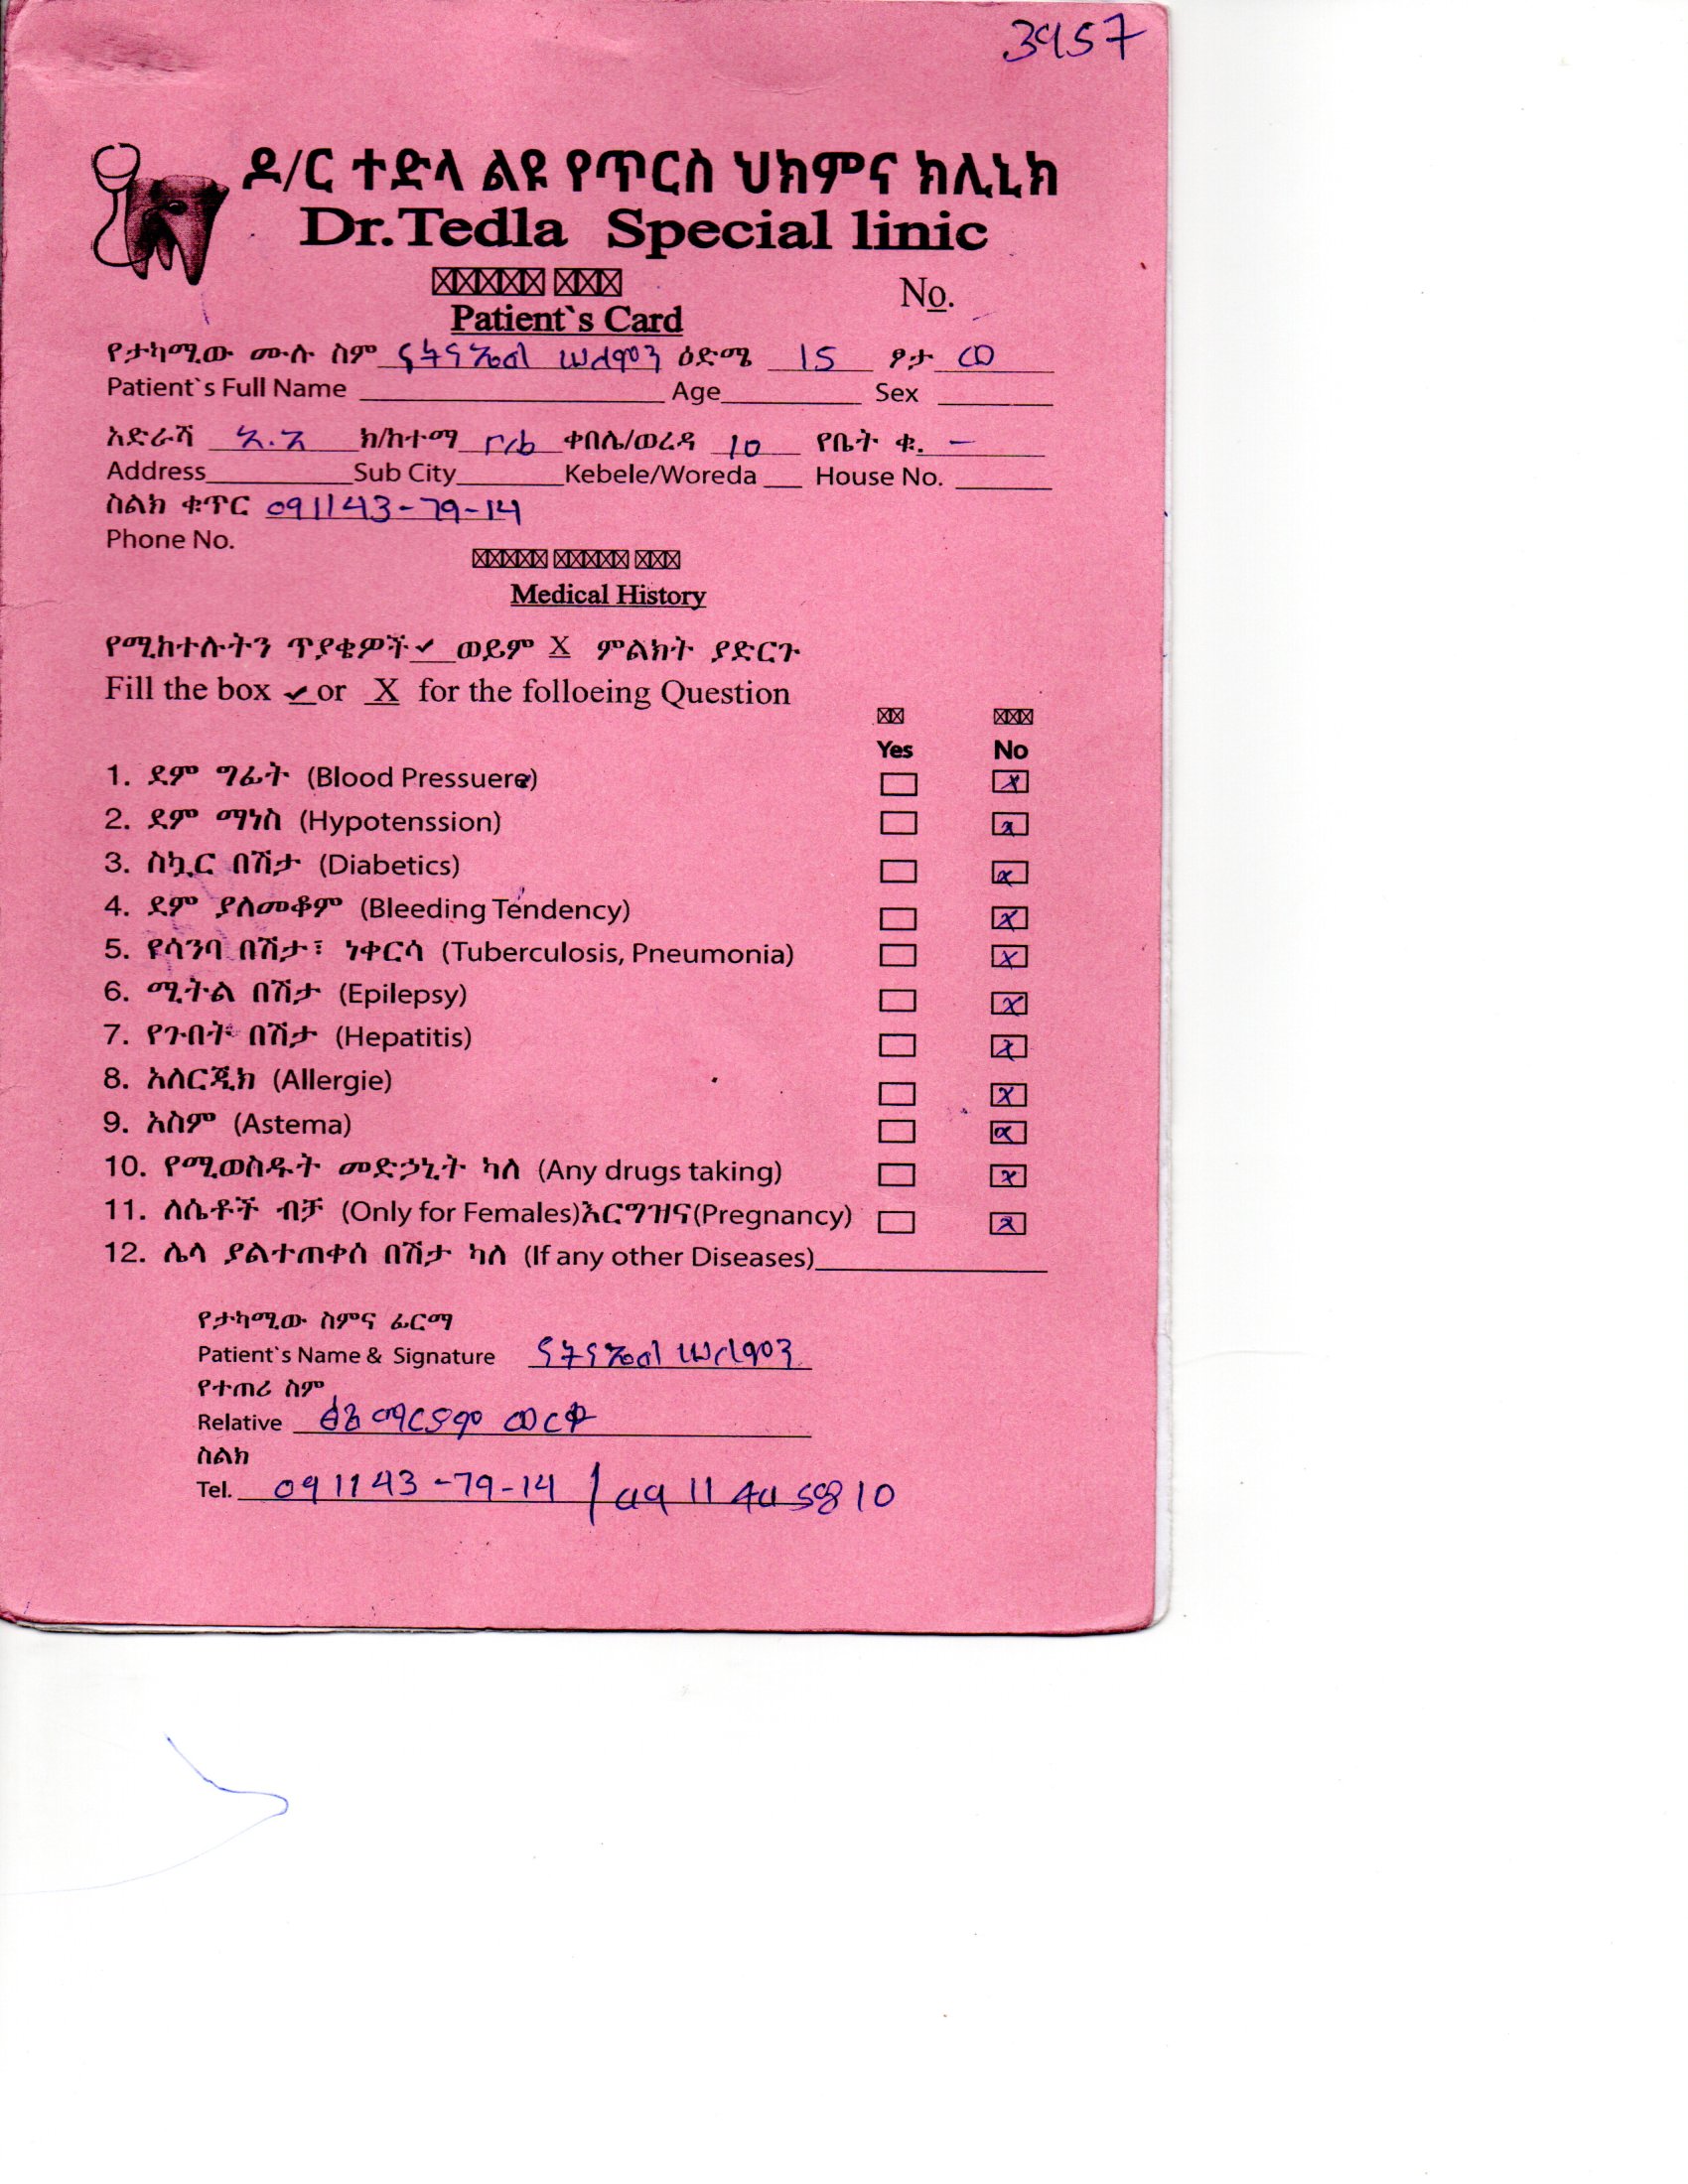 3957
ዶ/ር ተድላ ልዩ የጥርስ ህክምና ክሊኒክ
Dr.Tedla Special linic
Patient`s Card
No.
የታካሚው ሙሉ ስም ናትናኤል ዕድሜ 15 ፆታ ወ
Patient`s Full Name Age Sex
አድራሻ አ.አ ክ/ከተማ ቀበሌ/ወረዳ 10 የቤት ቁ. -
Address Sub City Kebele/Woreda House No.
ስልክ ቁጥር 091143-79-14
Phone No.
Medical History
የሚከተሉትን ጥያቄዎች ✓ ወይም X ምልክት ያድርጉ
Fill the box ✓ or X for the folloeing Question
Yes No
1. ደም ግፊት (Blood Pressuere) X
2. ደም ማነስ (Hypotenssion) X
3. ስኳር በሽታ (Diabetics) X
4. ደም ያለመቆም (Bleeding Tendency) X
5. የሳንባ በሽታ፣ ነቀርሳ (Tuberculosis, Pneumonia) X
6. ሚትል በሽታ (Epilepsy) X
7. የጉበት በሽታ (Hepatitis) X
8. አለርጂክ (Allergie) X
9. አስም (Astema) X
10. የሚወስዱት መድኃኒት ካለ (Any drugs taking) X
11. ለሴቶች ብቻ (Only for Females)እርግዝና(Pregnancy) X
12. ሌላ ያልተጠቀሰ በሽታ ካለ (If any other Diseases)
የታካሚው ስምና ፊርማ
Patient`s Name & Signature ናትናኤል
የተጠሪ ስም
Relative ማርያም ወርቁ
ስልክ
Tel. 091143-79-14 /